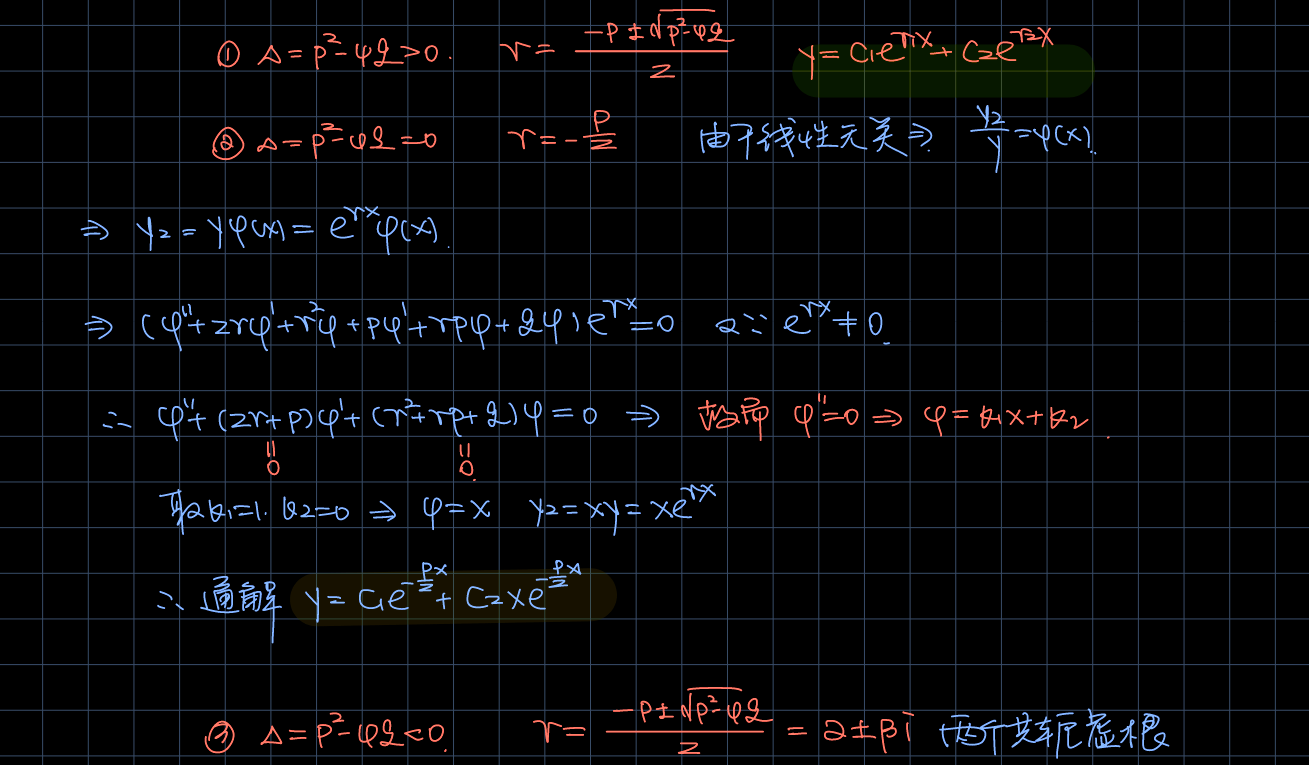 ① Δ=p²-4q>0. r=(-p±√(p²-4q))/2 y=C₁e^(r₁x)+C₂e^(r₂x)
② Δ=p²-4q=0 r=-p/2 由于线性无关⇒ y₂/y=φ(x).
⇒ y₂=yφ(x)=e^(rx)φ(x).
⇒ (φ''+2rφ'+r²φ+pφ'+rpφ+qφ)e^(rx)=0 又∵ e^(rx)≠0.
∴ φ''+(2r+p)φ'+(r²+rp+q)φ=0 ⇒ φ''=0 ⇒ φ=k₁x+k₂.
=0 =0.
取k₁=1. k₂=0 ⇒ φ=x y₂=xy=xe^(rx)
∴ 通解 y=C₁e^(-p/2 x)+C₂xe^(-p/2 x)
③ Δ=p²-4q<0. r=(-p±√(p²-4q))/2=α±βi 两个共轭虚根